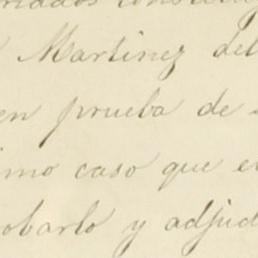 Martinez del
en prueba de
imo caso que e
obarlo y adjud